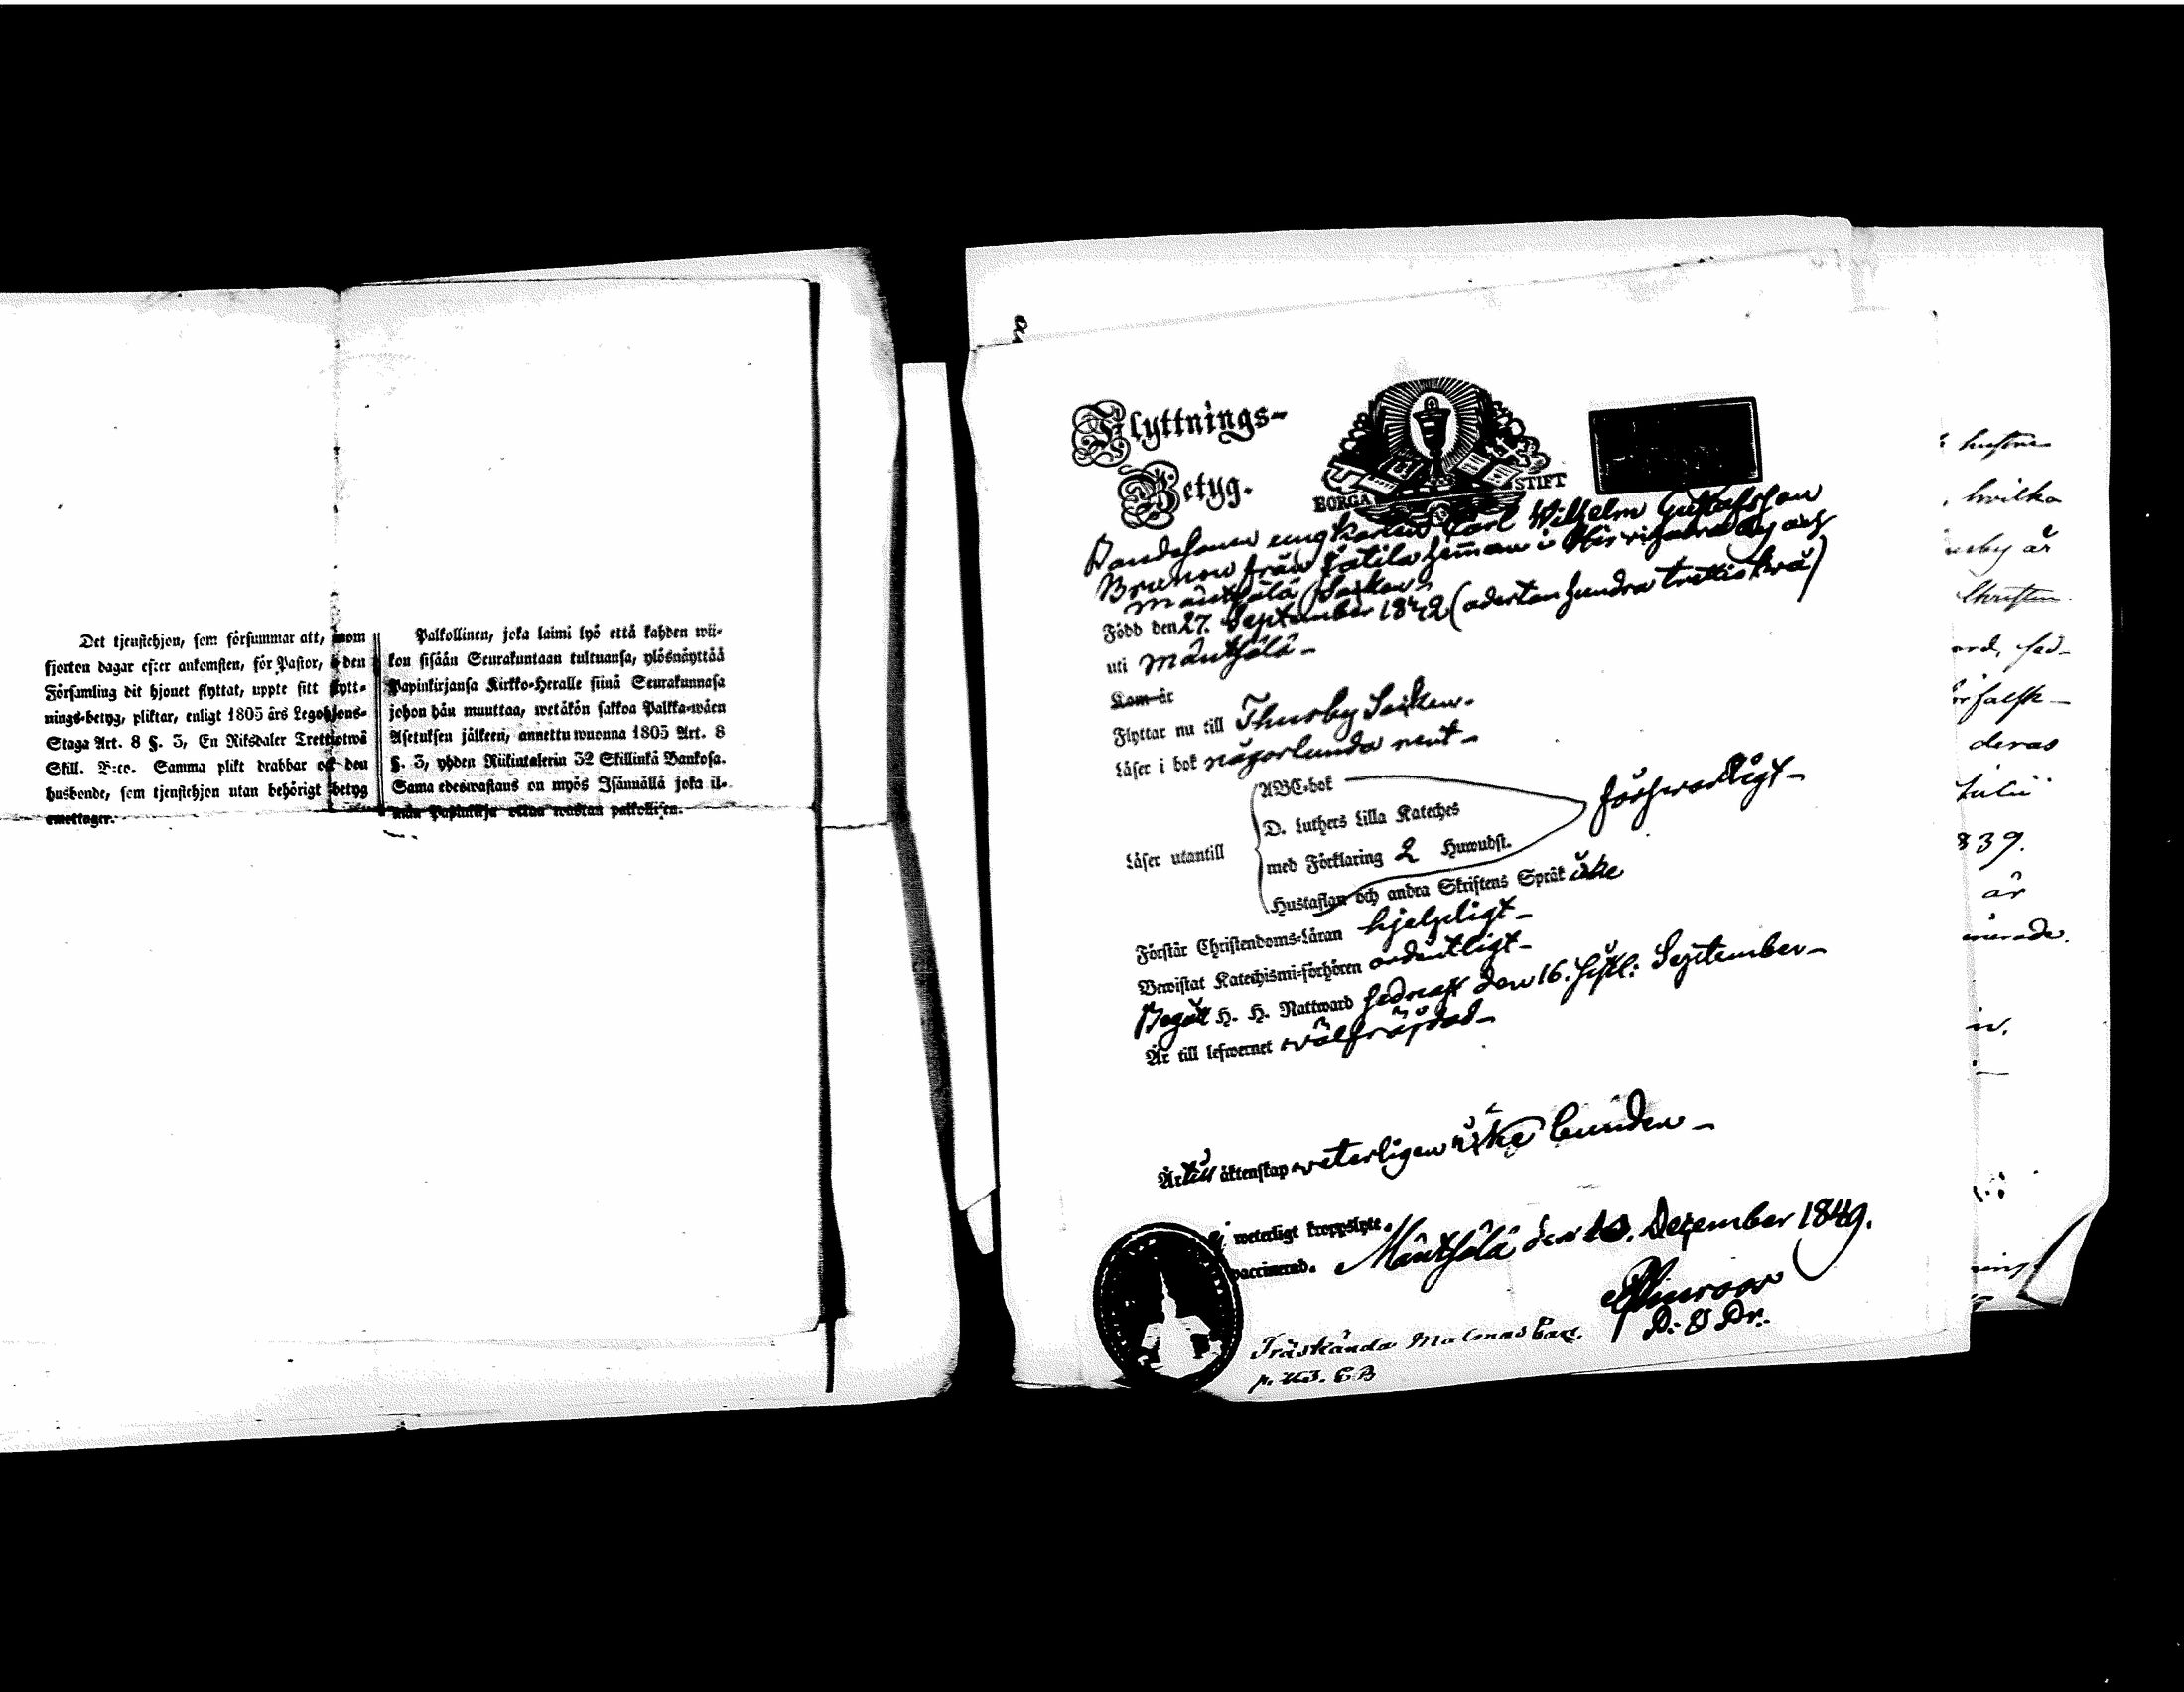 Det tjenstehjon, som försummar att, inom
fjorton dagar efter ankomsten, för Pastor, i den
Församling dit hjonet flyttat, uppte sitt flytt-
nings-betyg, pliktar, enligt 1805 års Legohjons-
Staga Art. 8 §. 3, En Riksdaler Trettiotwå
Skill. B:co. Samma plikt drabbar ock den
husbonde, som tjenstehjon utan behörigt betyg
emottager.
Palkollinen, joka laimi lyö että kahden wii-
kon sisään Seurakuntaan tultuansa, ylösnäyttää
Papinkirjansa Kirkko-Heralle siinä Seurakunnasa
johon hän muuttaa, wetäkön sakkoa Palkka-wäen
Asetuksen jälkeen, annettu wuonna 1805 Art. 8
§. 3, yhden Riikintalerin 32 Skillinkä Bankosa.
Sama edeswastaus on myös Isännällä joka il-
man Papinkirja ottaa wastan palkollisen.
Flyttnings-
Betyg.
BORGÅ STIFT
ungkarlen Carl Wilhelm Gustafsson
från Jätila hemman i by af
Mäntsälä Socken
Född den 27. September (adertonhundra trettiotvå)
uti Mäntsälä-
Kom år
Flyttar nu till Thusby Socken.
Läser i bok någorlunda rent-
Läser utantill
ABC-bok
D. Luthers Lilla Kateches
med Förklaring 2 Huwudst.
Hustaflan och andra Skriftens Språk icke
försvarligt-
Förstår Christendoms-Läran hjelpligt-
Bewistat Katechismi-förhören ordentligt-
Begått H. H. Nattward sednast den 16. sistl: September-
Är till lefwernet välfräjdad-
Är till äktenskap veterligen icke bunden-
ej weterligt kroppslyte.
vaccinerad. Mäntsälä den December 1849.
D: Dr.
Träskända Malmas
hustru
hvilka
är
Christen
deras
Julii
839.
är